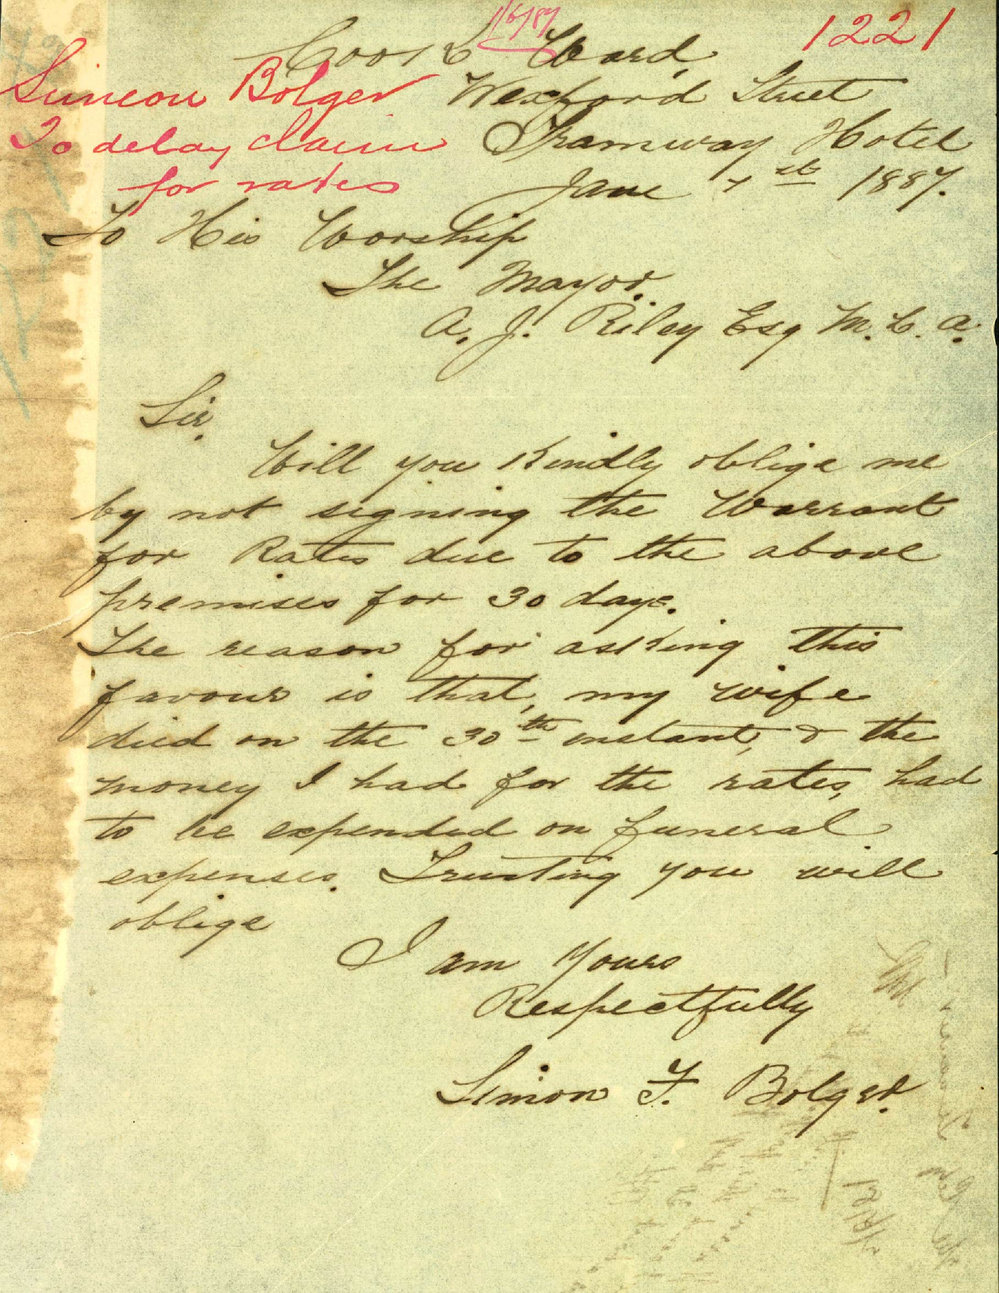 1/6/87
1221
Cook Ward
Simeon Bolger
To delay claim
for rates
Wexford Street
Tramway Hotel
June 1st 1887.
To His Worship
The Mayor.
A. J. Riley Esq M. L. A.
Sir.
Will you Kindly oblige me
by not signing the Warrant
for Rates due to the above
premises for 30 days.
The reason for asking this
favour is that, my wife
died on the 30th instant, & the
money I had for the rates, had
to be expended on funeral
expenses. Trusting you will
oblige
I am Yours
Respectfully
Simon F. Bolger.